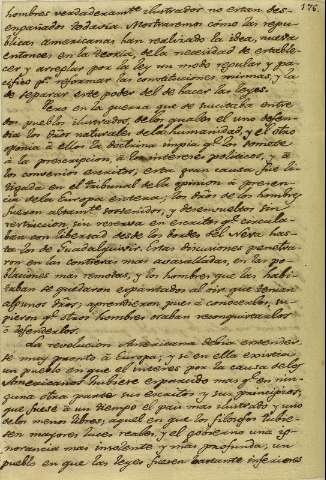 176.
hombres verdaderamte ilustrados no esten des-
engañados todavia. Mostraremos cómo las repu-
blicas americanas han realizado la idea, nueva
entonces en la teoria, de la necesidad de estable-
cer, y arreglar por la ley un modo regular y pa-
cifico pa reformar las constituciones mismas, y la
de separar este poder del de hacer las leyes.
Pero en la guerra que se suscitaba entre
dos pueblos ilustrados, de los quales el uno defen-
dia los dros naturales de la humanidad, y el otro
oponia á ellos la doctrina impia qe los somete
á la prescripcion, á los intereses politicos, y á
los convenios escritos, esta gran causa fue li-
tigada en el tribunal de la opinion á presen-
cia de la Europa entera; los dros de los hombres
fueron altamte sostenidos, y desenvueltos sin
restriccion, sin reserva en escritos qe circula-
ban con libertad desde los bordes del Neva has-
ta los de Guadalquivir. Estas discusiones penetra-
ron en las comarcas mas avasalladas, en las po-
blaciones mas remotas, y los hombres que las habi-
taban se quedaron espantados al oir que tenian
algunos dros, aprendieron pues á conocerlos, su-
pieron qe otros hombres osaban reconquistarlos
ó defenderlos.
La revolucion Americana debia extenderse
muy pronto á Europa; y si en ella existia
un pueblo en que el interes por la causa de los
Americanos hubiese esparcido mas qe en nin-
guna otra parte sus escritos y sus principios,
que fuese á un tiempo el pais mas ilustrado y uno
de los menos libres; aquel en que los filosofos tubie-
sen mayores luces reales, y el gobierno una ig-
norancia mas insolente y mas profunda; un
pueblo en que las leyes fuesen bastante inferiores